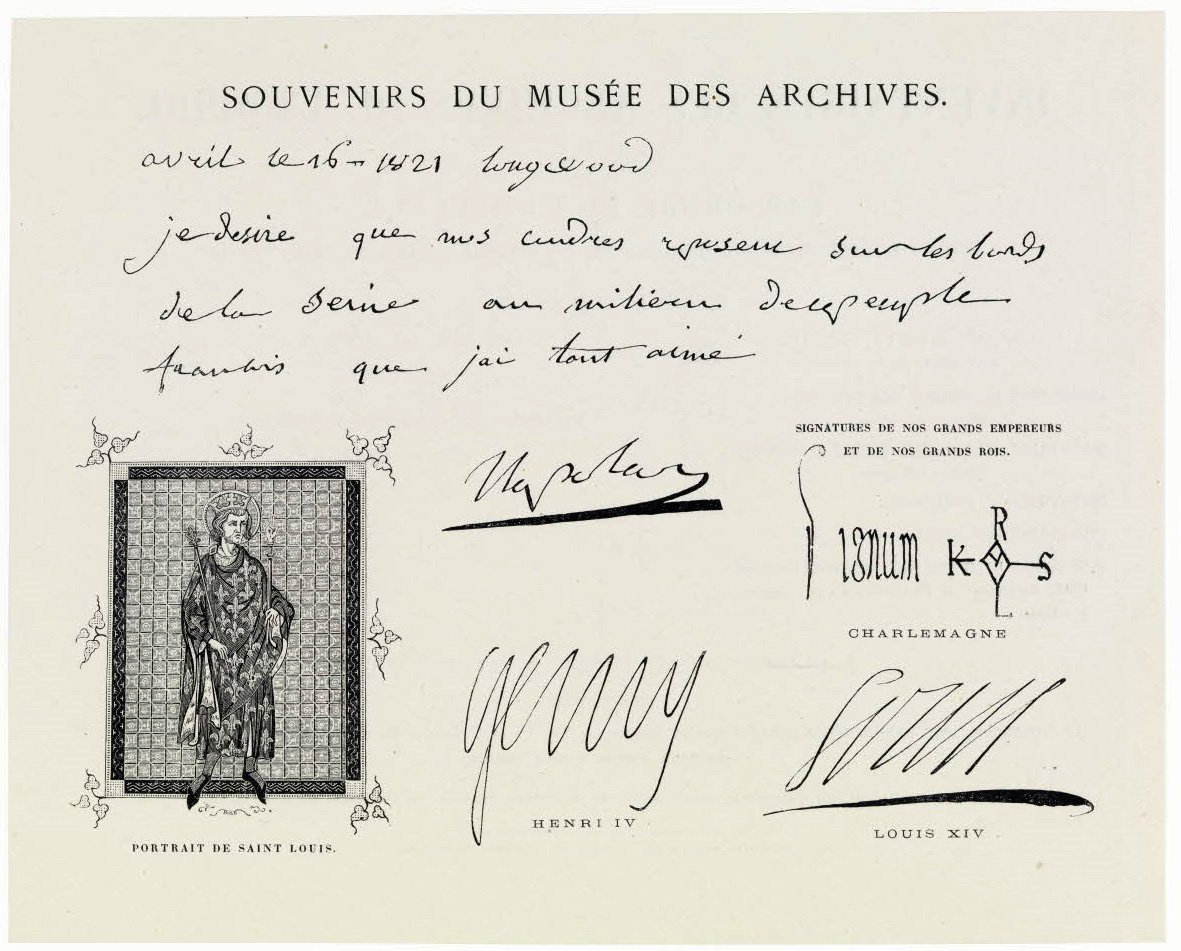 SOUVENIRS DU MUSÉE DES ARCHIVES.
avril le 16 - 1821 longwood
je desire que mes cendres reposent sur les bords
de la Seine au milieu de ce peuple
francais que jai tant aimé
Napoleon
SIGNATURES DE NOS GRANDS EMPEREURS
ET DE NOS GRANDS ROIS.
Signum KRLS
CHARLEMAGNE
Henry
HENRI IV
Louis
LOUIS XIV
PORTRAIT DE SAINT LOUIS.